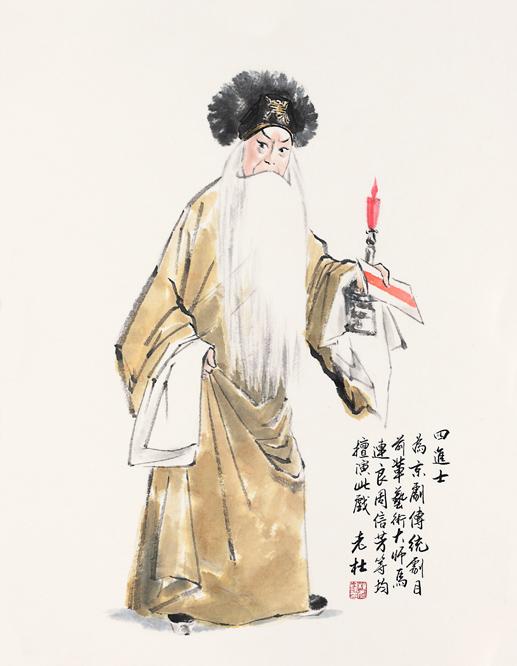 四進士
為京劇傳統劇目
前輩藝術大師馬
連良周信芳等均
擅演此戲 老杜